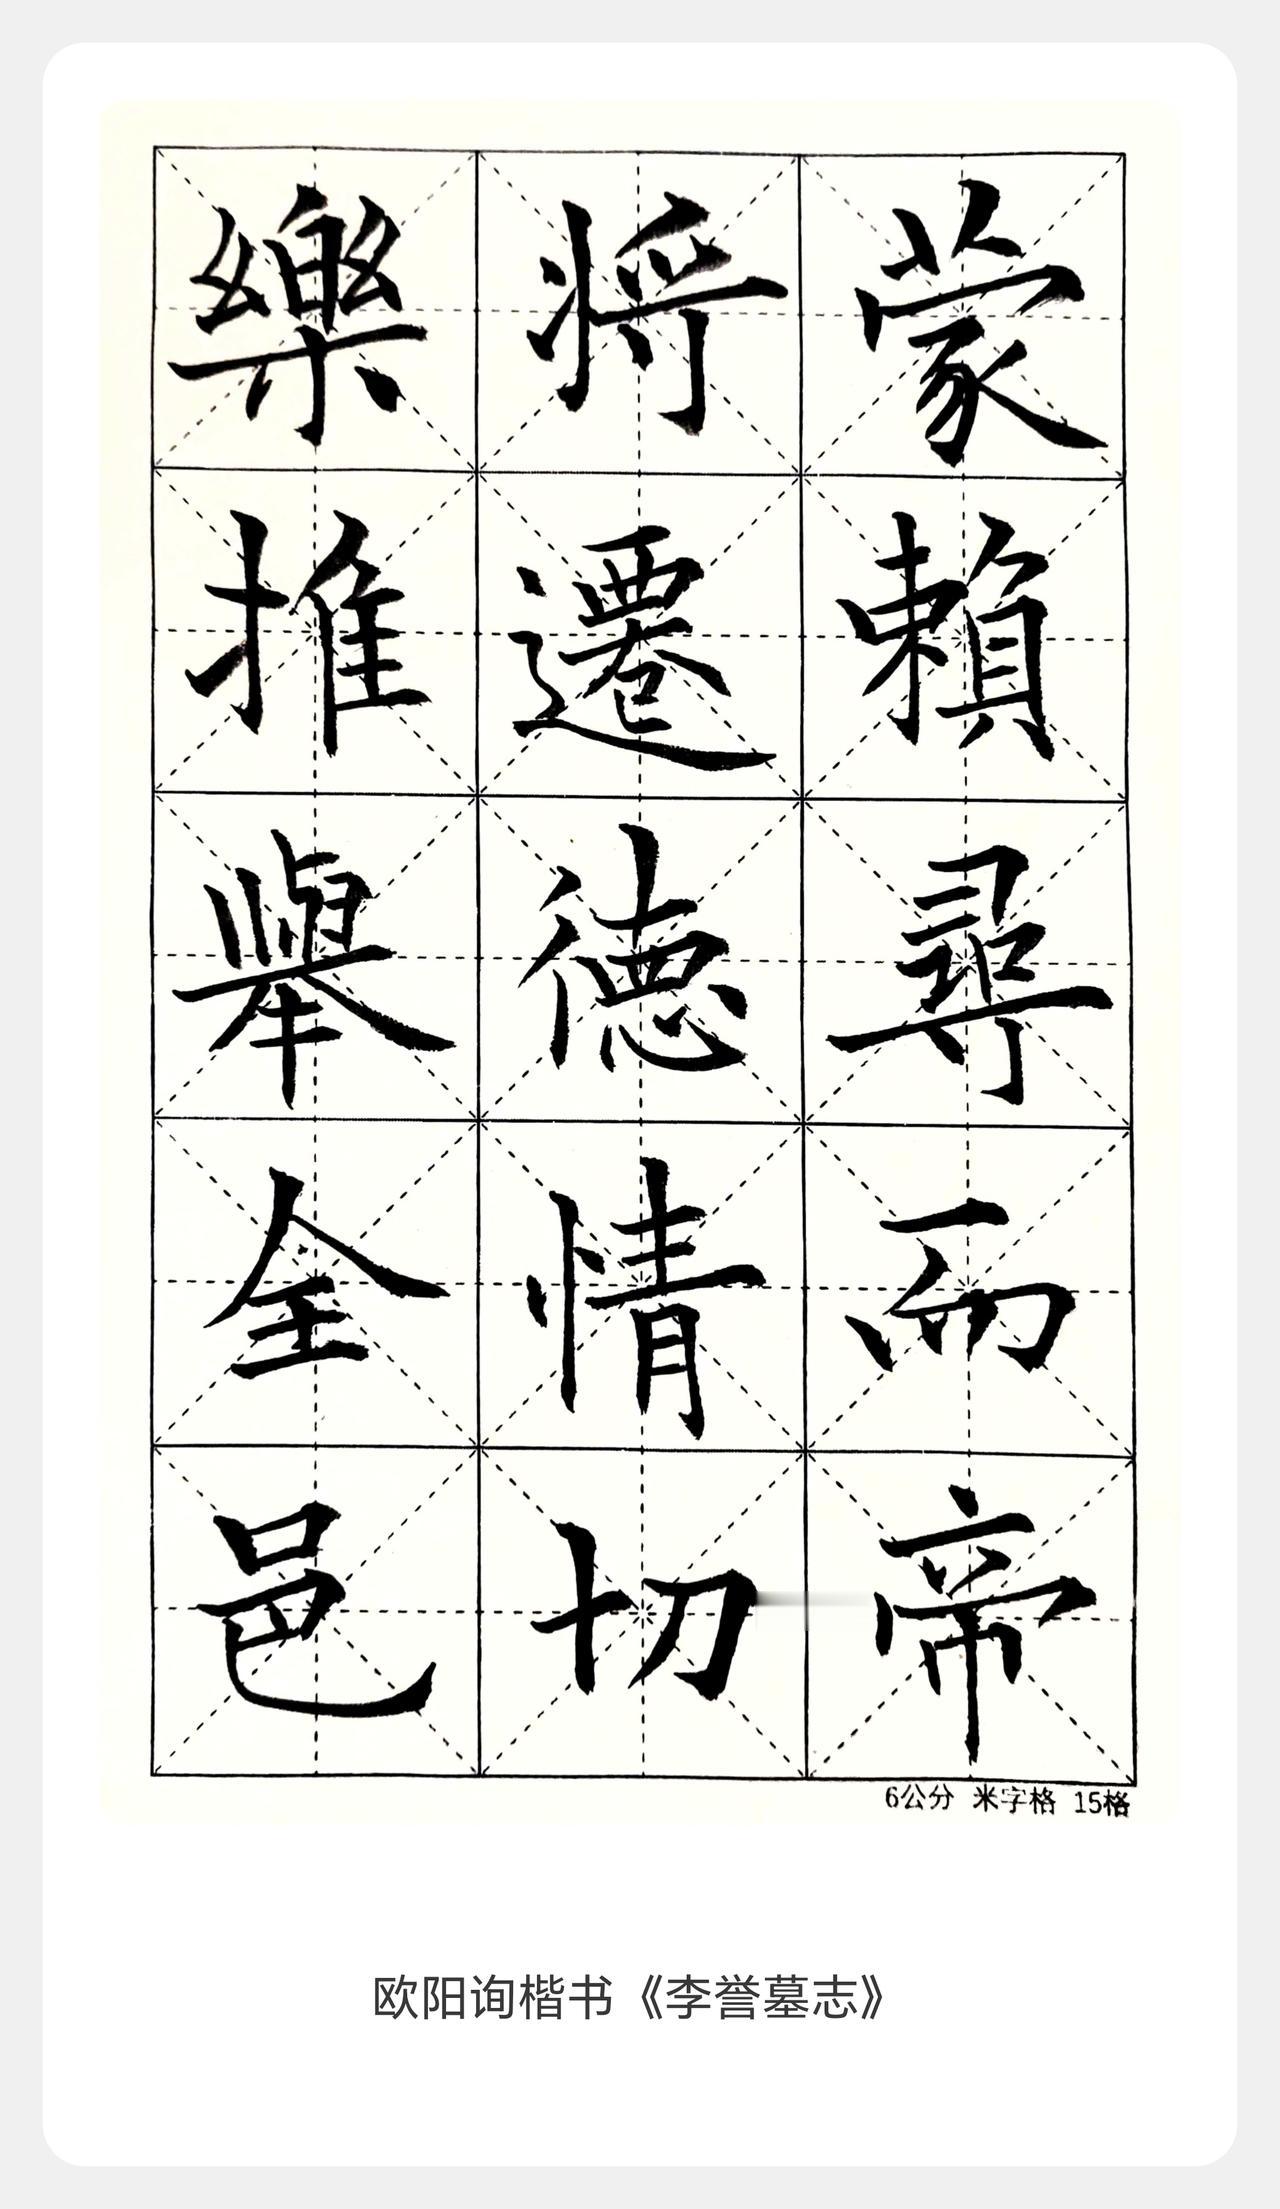 蒙賴尋而帝
將遷德情切
樂推舉全邑
6公分 米字格 15格
欧阳询楷书《李誉墓志》